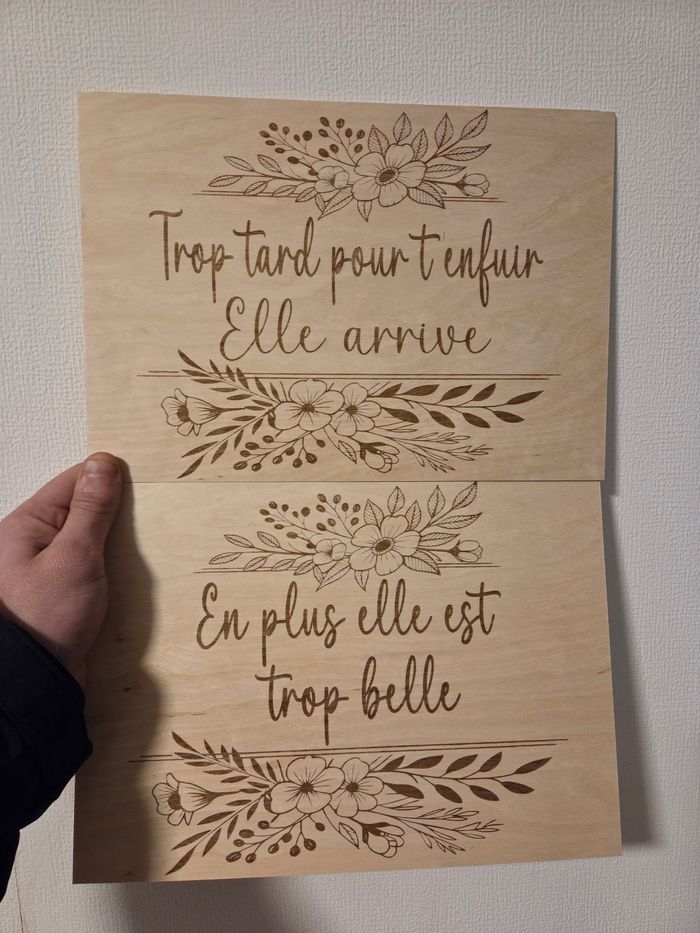 Trop tard pour t'enfuir
Elle arrive
En plus elle est
trop belle